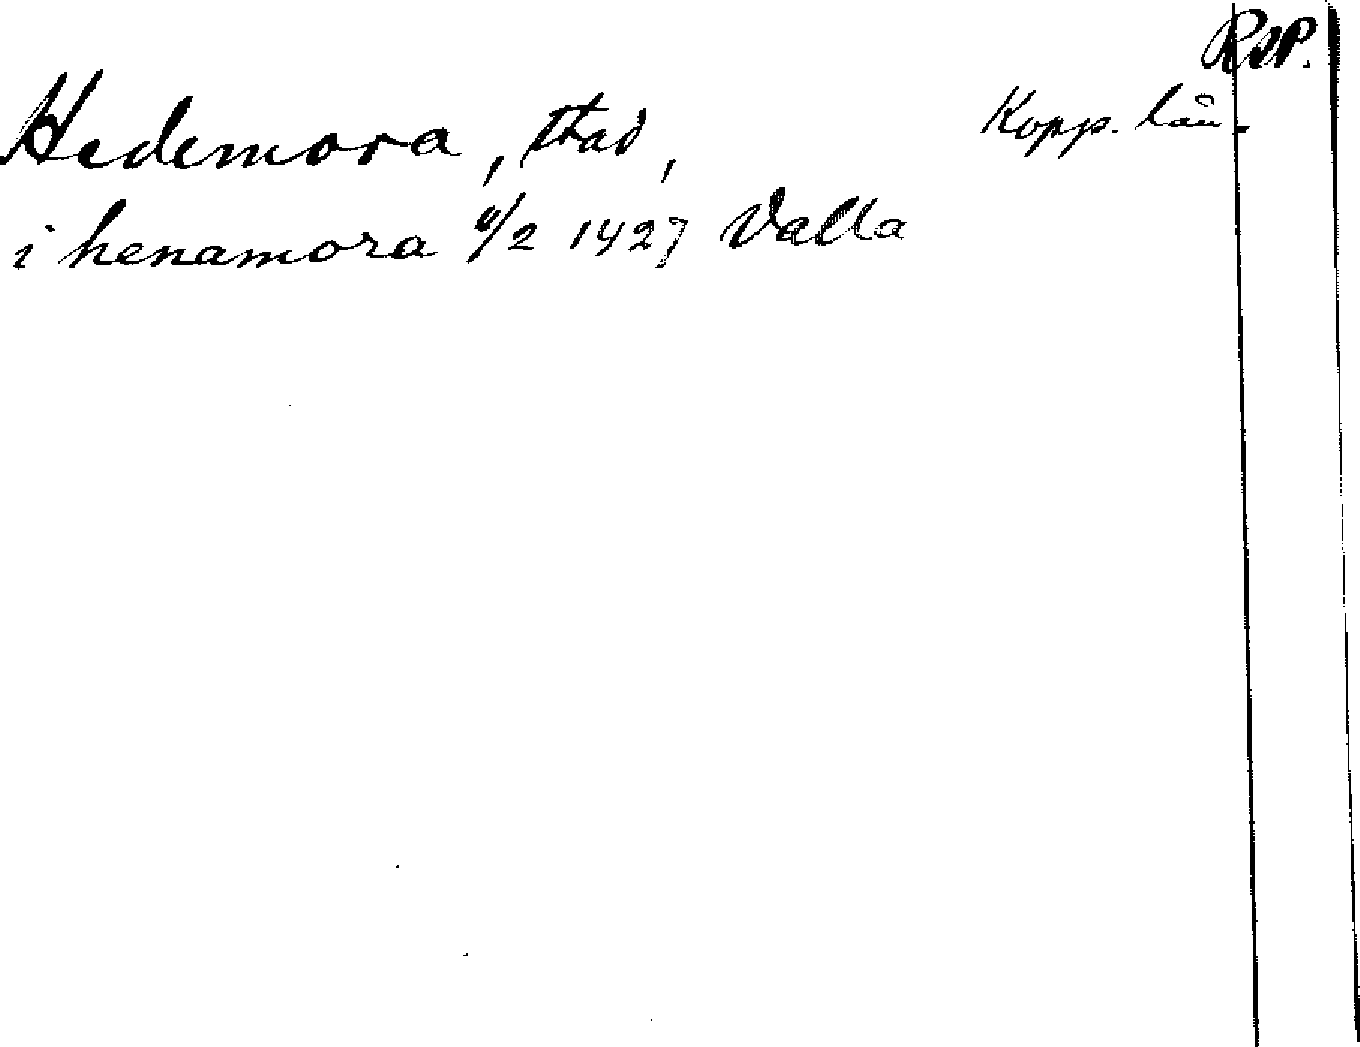 RAP.
Hedemora, stad, Kopp. län.
i henamora 4/2 1427 Valla